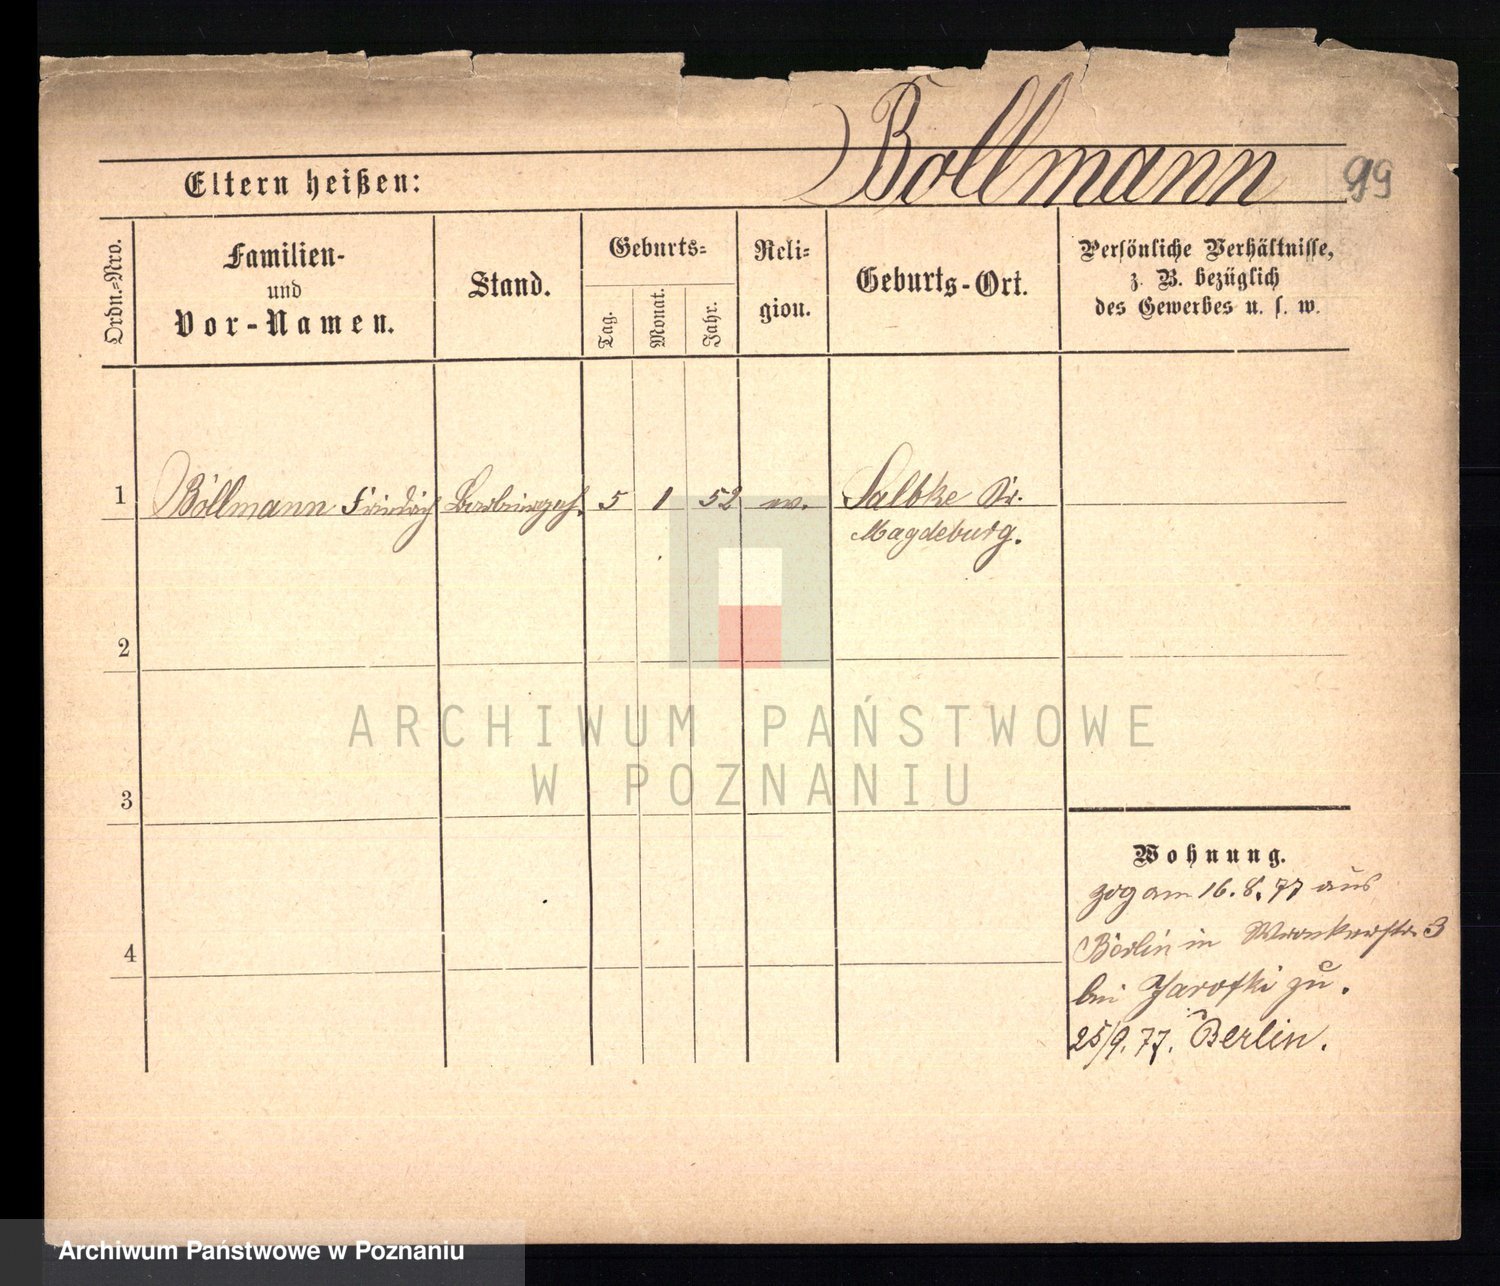 Bollmann
99
Eltern heißen:
Ordn.-Nro.
Familien-
und
Vor-Namen.
Stand.
Geburts-
Tag.
Monat.
Jahr.
Reli-
gion.
Geburts-Ort.
Persönliche Verhältnisse,
z. B. bezüglich
des Gewerbes u. s. w.
1 Bollmann Friedrich Barbiergeh. 5 1 52 ev. Salbke Kr.
Magdeburg.
2
3
4
Wohnung.
zog am 16. 8. 77 aus
Berlin in Wronkerstr. 3
bei Jarofki zu.
25/9. 77. Berlin.
ARCHIWUM PAŃSTWOWE
W POZNANIU
Archiwum Państwowe w Poznaniu